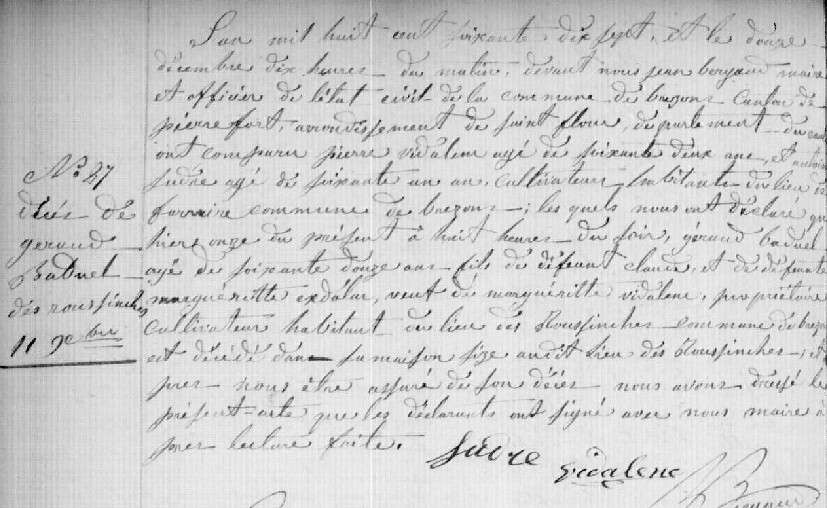 L'an mil huit cent soixante dix sept, et le douze
décembre dix heures du matin, devant nous jean maire
et officier de l'état civil de la commune de brezons Canton de
pierrefort, arrondissement de saint flour, département du
ont comparu pierre vidalenc agé de soixante deux ans, et
Sudre agé de soixante un an, cultivateurs habitants du lieu de
commune de brezons; les quels nous ont déclaré que
hiere onze du présent à huit heures du soir, gérand baduel
agé de soixante douze ans fils de défunt claude, et de défunte
marguéritte veuf de marguéritte vidalenc, propriétaire
Cultivateur habitant du lieu des Roussinches commune de
est décédé dans sa maison size audit Lieu des Roussinches; et
pres nous être assuré de son décès nous avons dressé le
présent acte que les déclarants ont signé avec nous maire à
pres lecture faite.
N° 27
décès de
geraud
Baduel
des roussinches
11
Sudre
Vidalenc